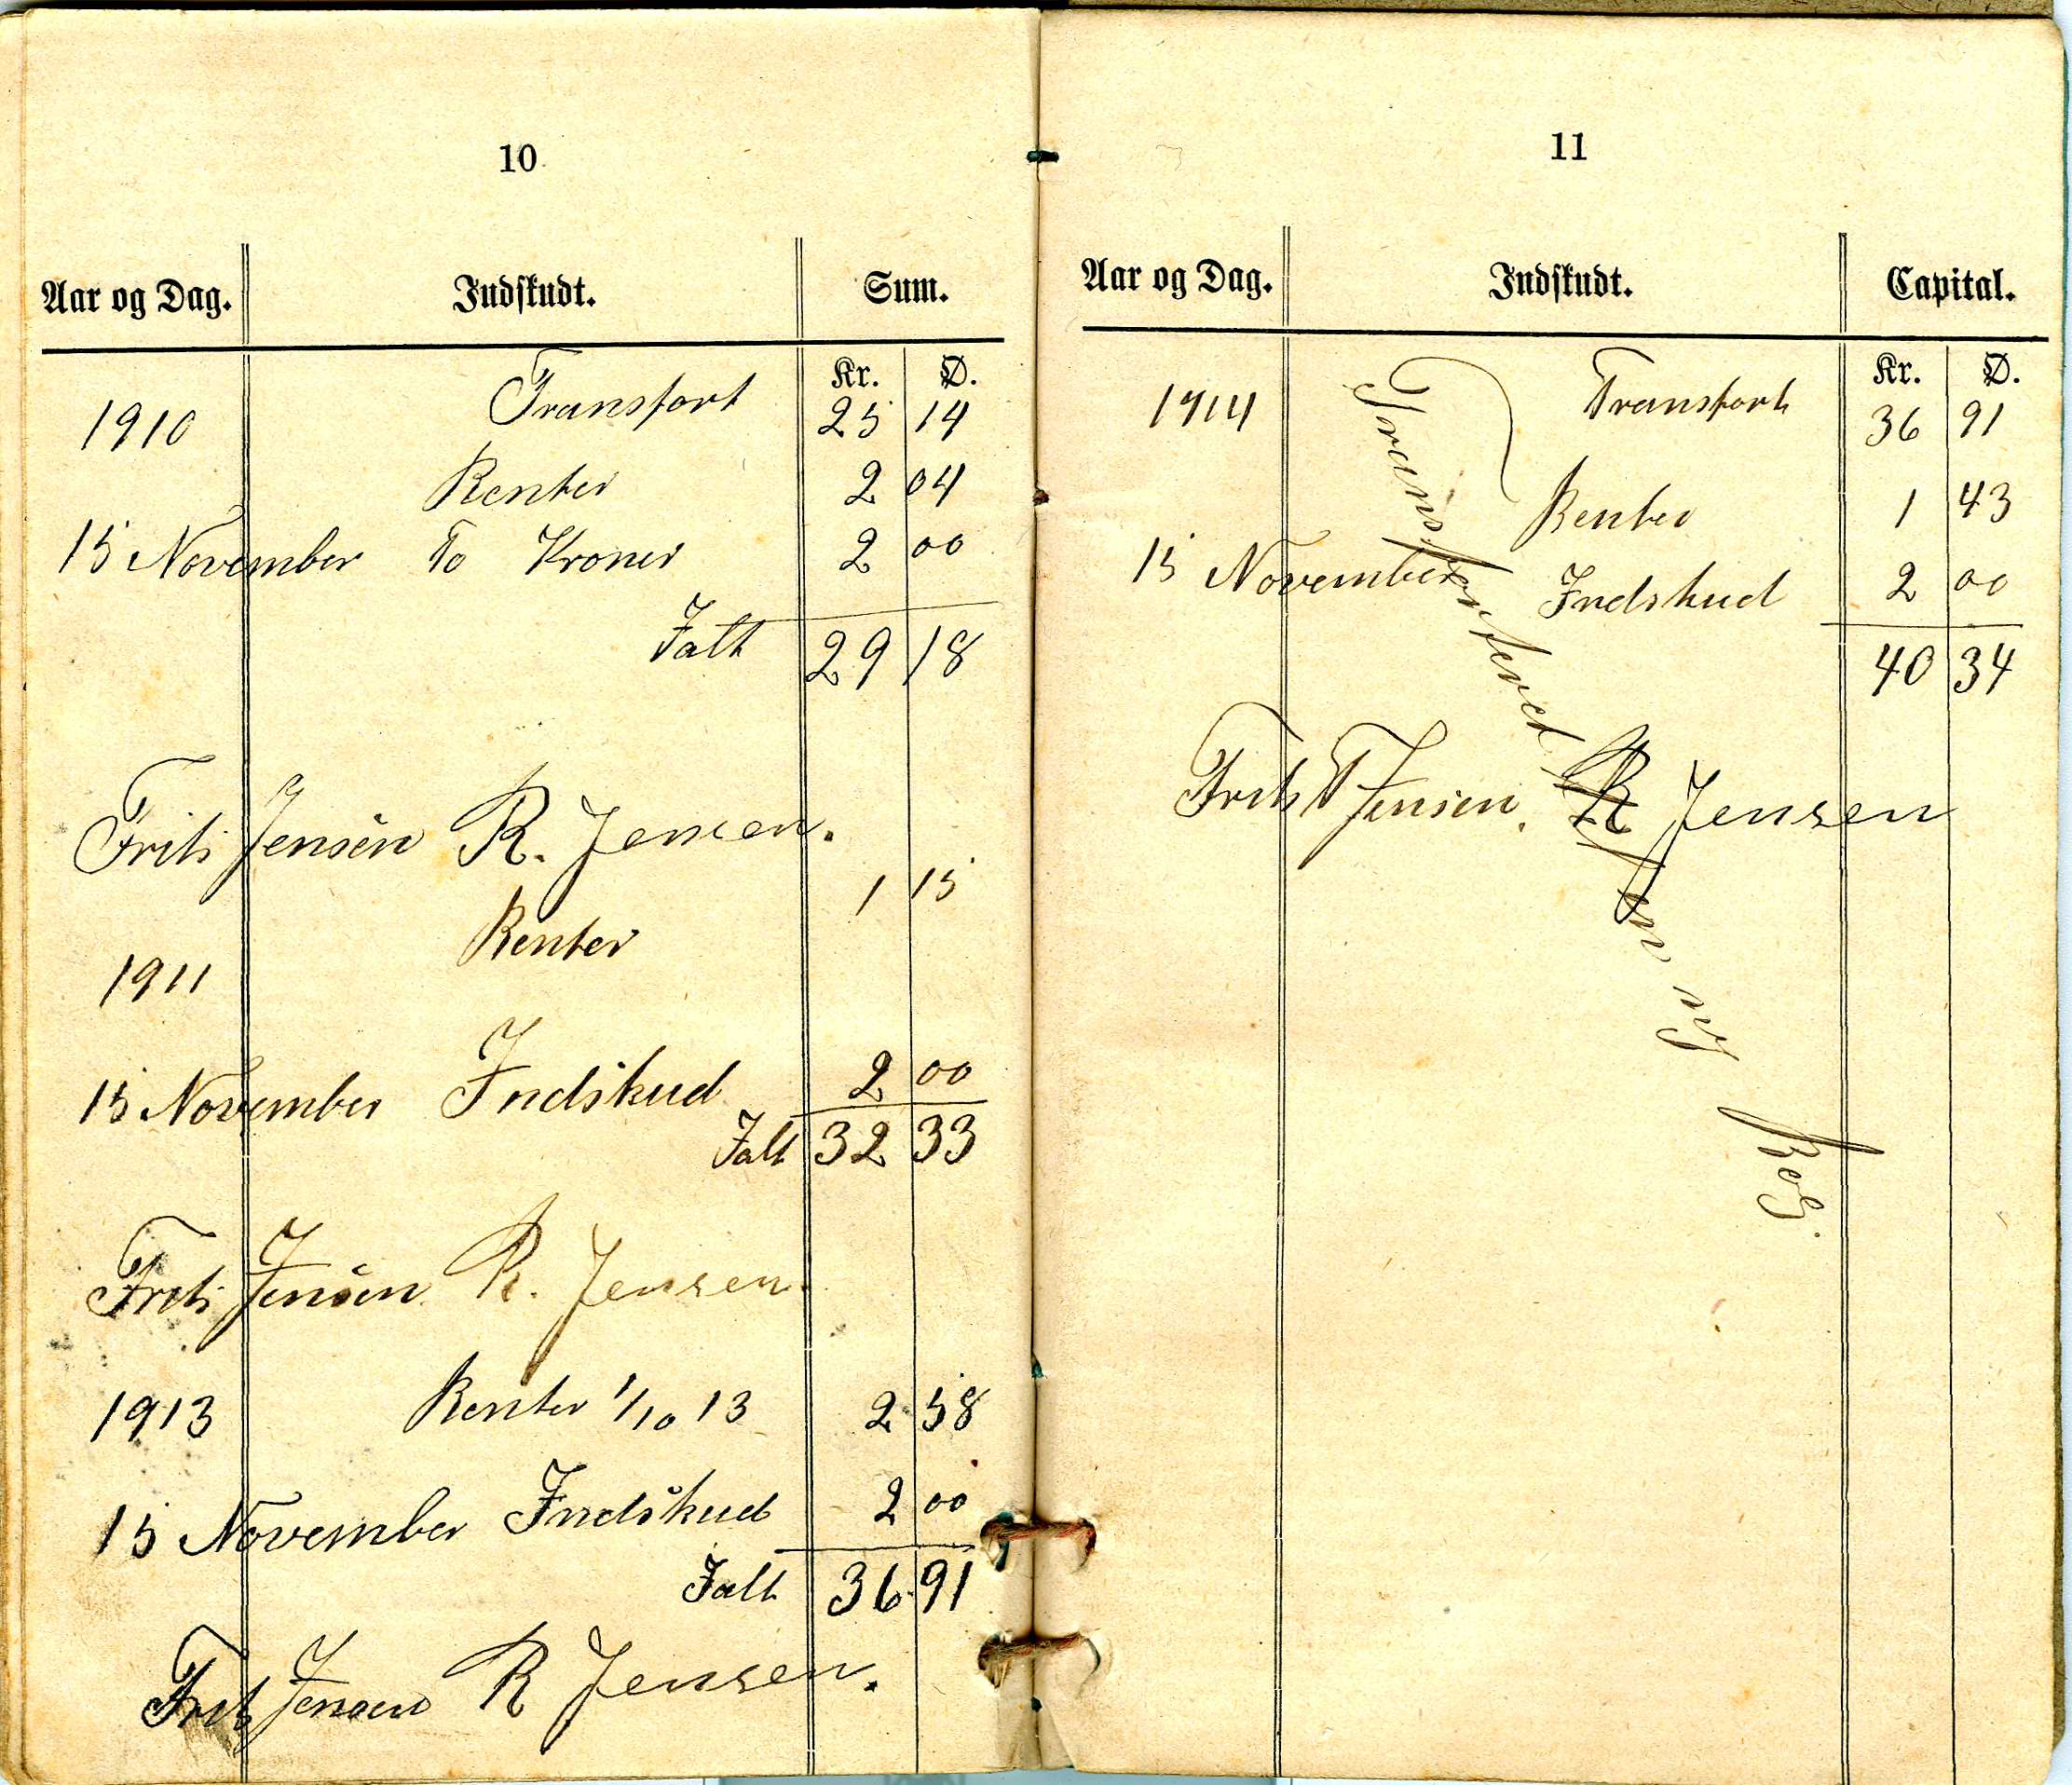 10
Aar og Dag. Indskudt. Sum.
Kr. Ø.
1910 Transport 25 14
Renter 2 04
15 November To Kroner 2 00
Ialt 29 18
Frits Jensen R. Jensen.
Renter 1 15
1911
15 November Indskud 2 00
Ialt 32 33
Frits Jensen R. Jensen.
1913 Renter 1/10 13 2 58
15 November Indskud 2 00
Ialt 36 91
Frits Jensen R Jensen.
11
Aar og Dag. Indskudt. Capital.
Kr. Ø.
1914 Transport 36 91
Renter 1 43
15 November Indskud 2 00
40 34
Frits Jensen. R Jensen
Transporteret til en ny Bog.